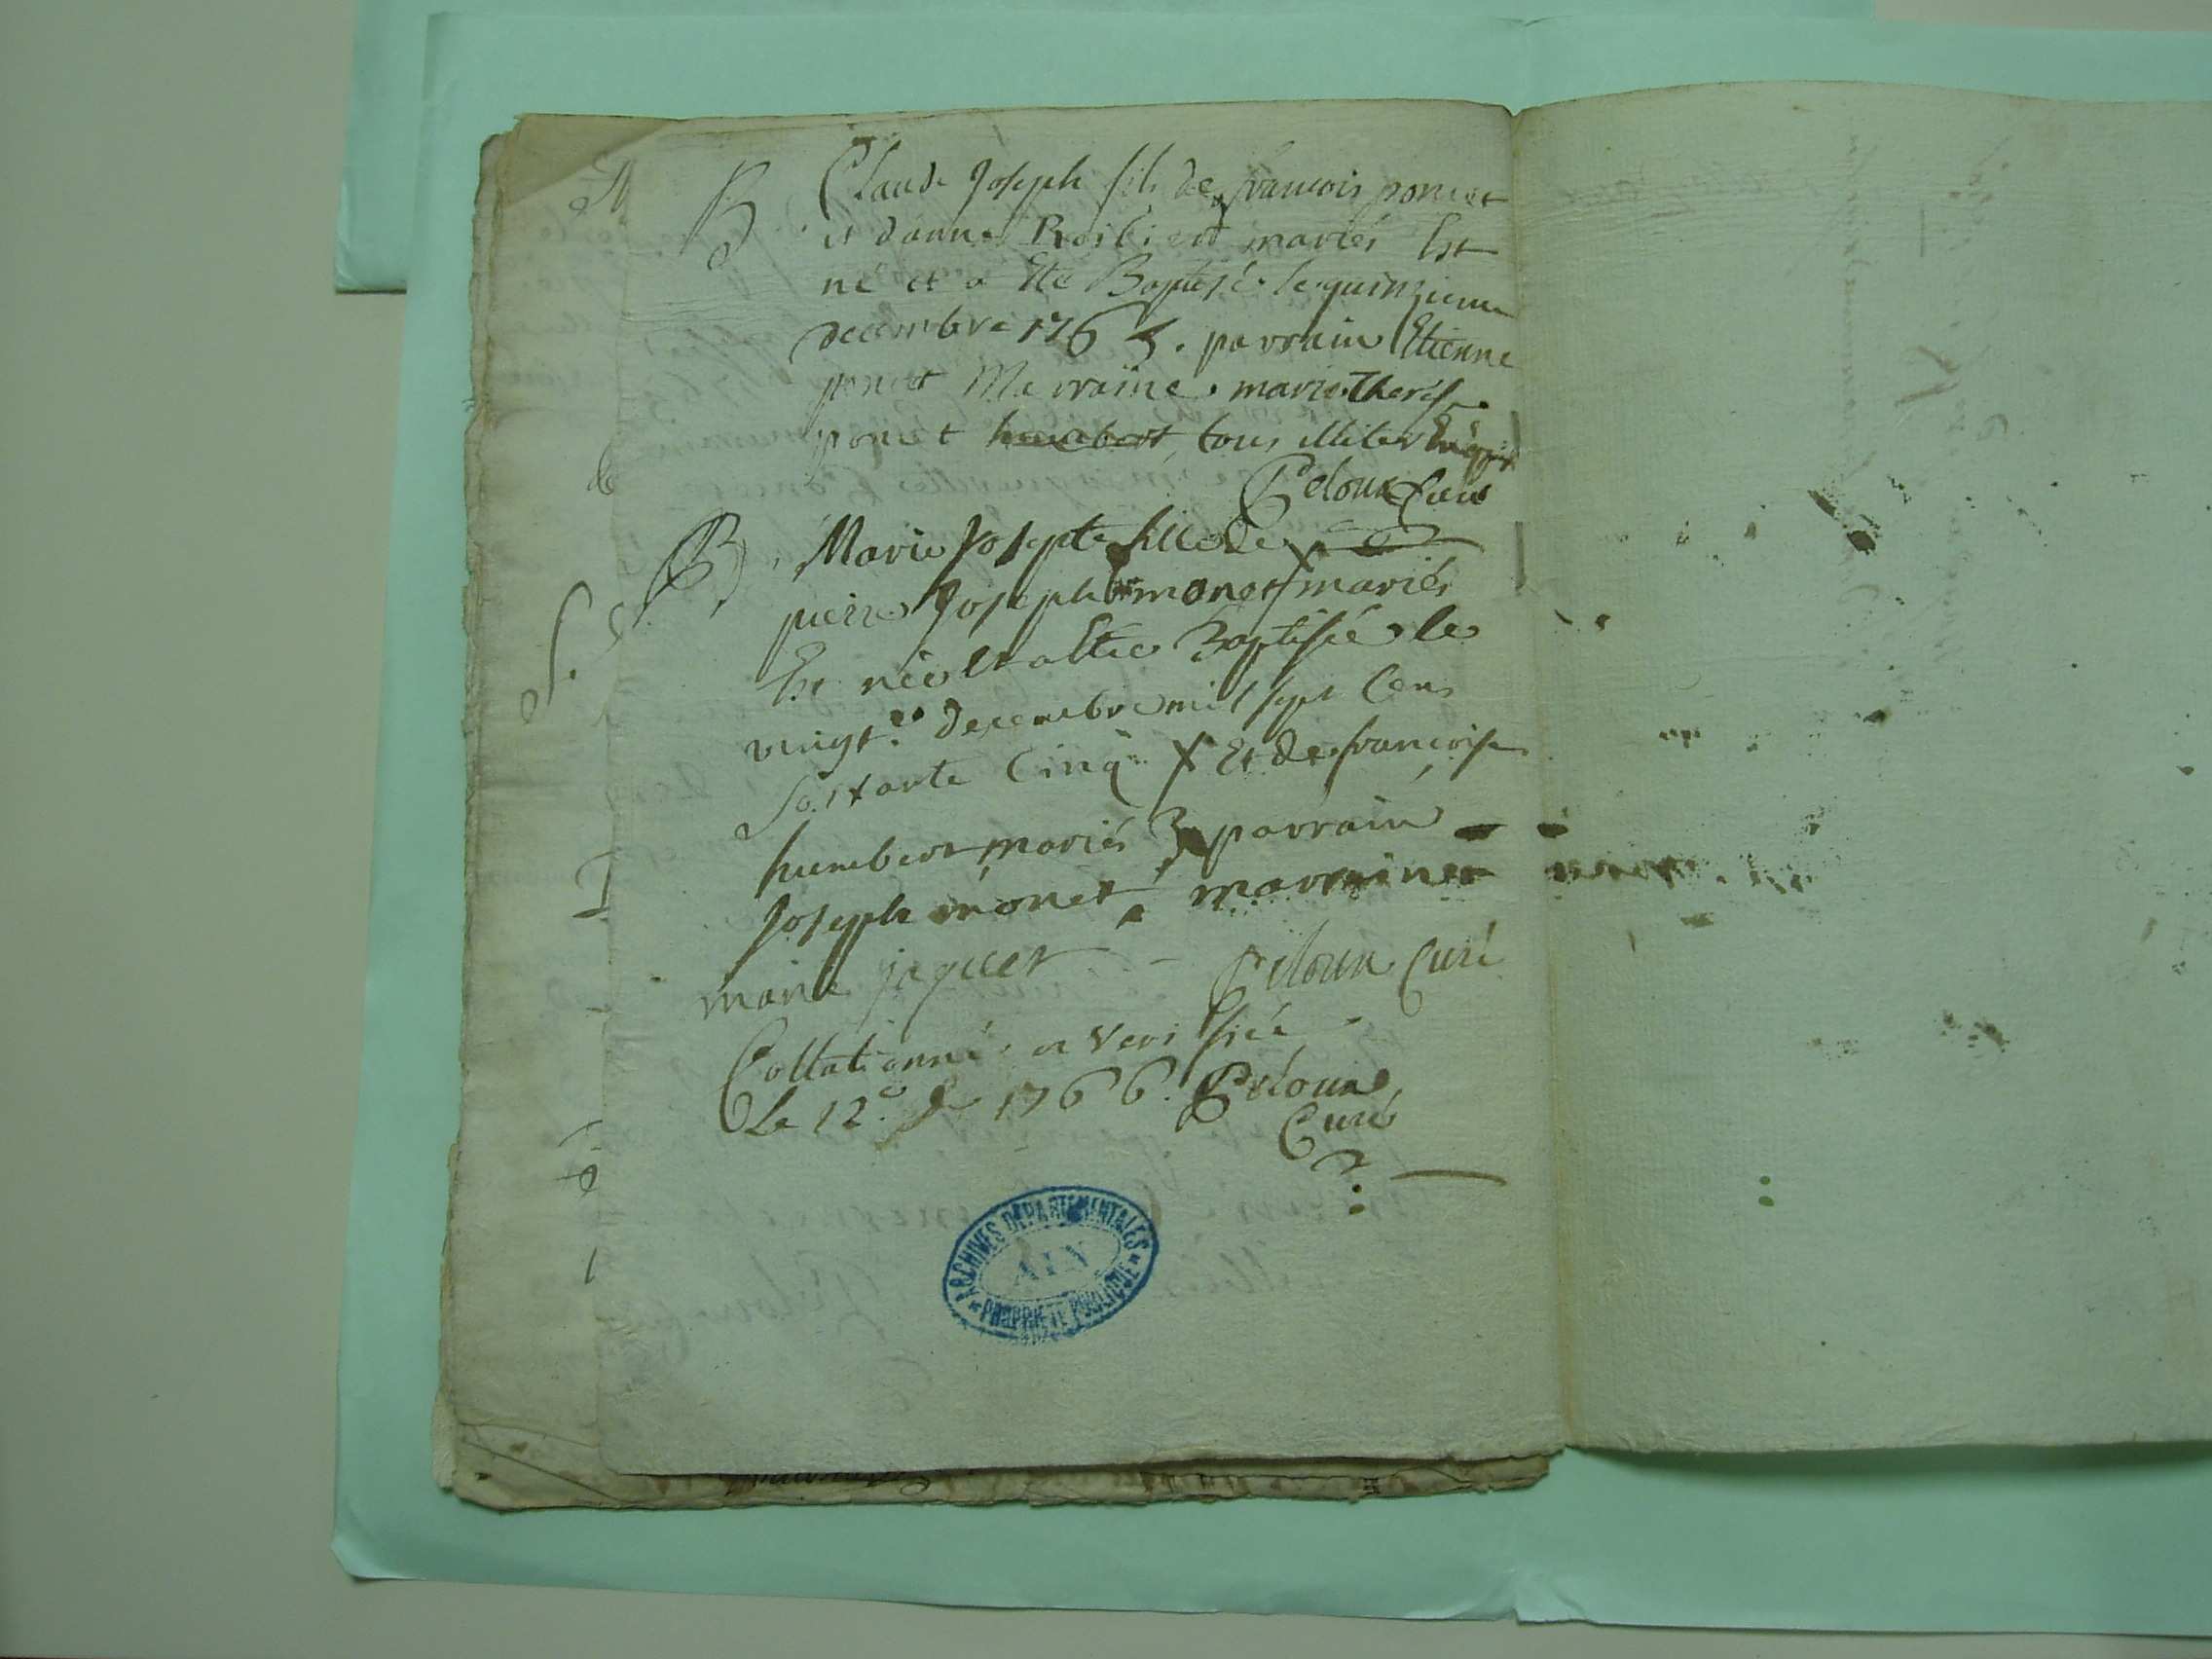 B
Claude Joseph fils de francois poncet
et d'anne Roibier mariés Est
né et a Eté Baptisé le quinzieme
decembre 1765. parrain Etienne
poncet Marraine marie Therese
poncet humbert tous illiterés
Peloux Curé
B
Marie Josephte fille de
pierre Joseph monet X mariés
Est née et a Etée Baptisée le
vingt.e decembre mil sept Cens
soixante Cinq X Et de francoise
humbert mariés parrain
Joseph monet marraine
marie jaquet Peloux Curé
Collationné et verifiée
Le 12.e 1766. Peloux
Curé
ARCHIVES DEPARTEMENTALES
AIN
PROPRIÉTÉ PUBLIQUE